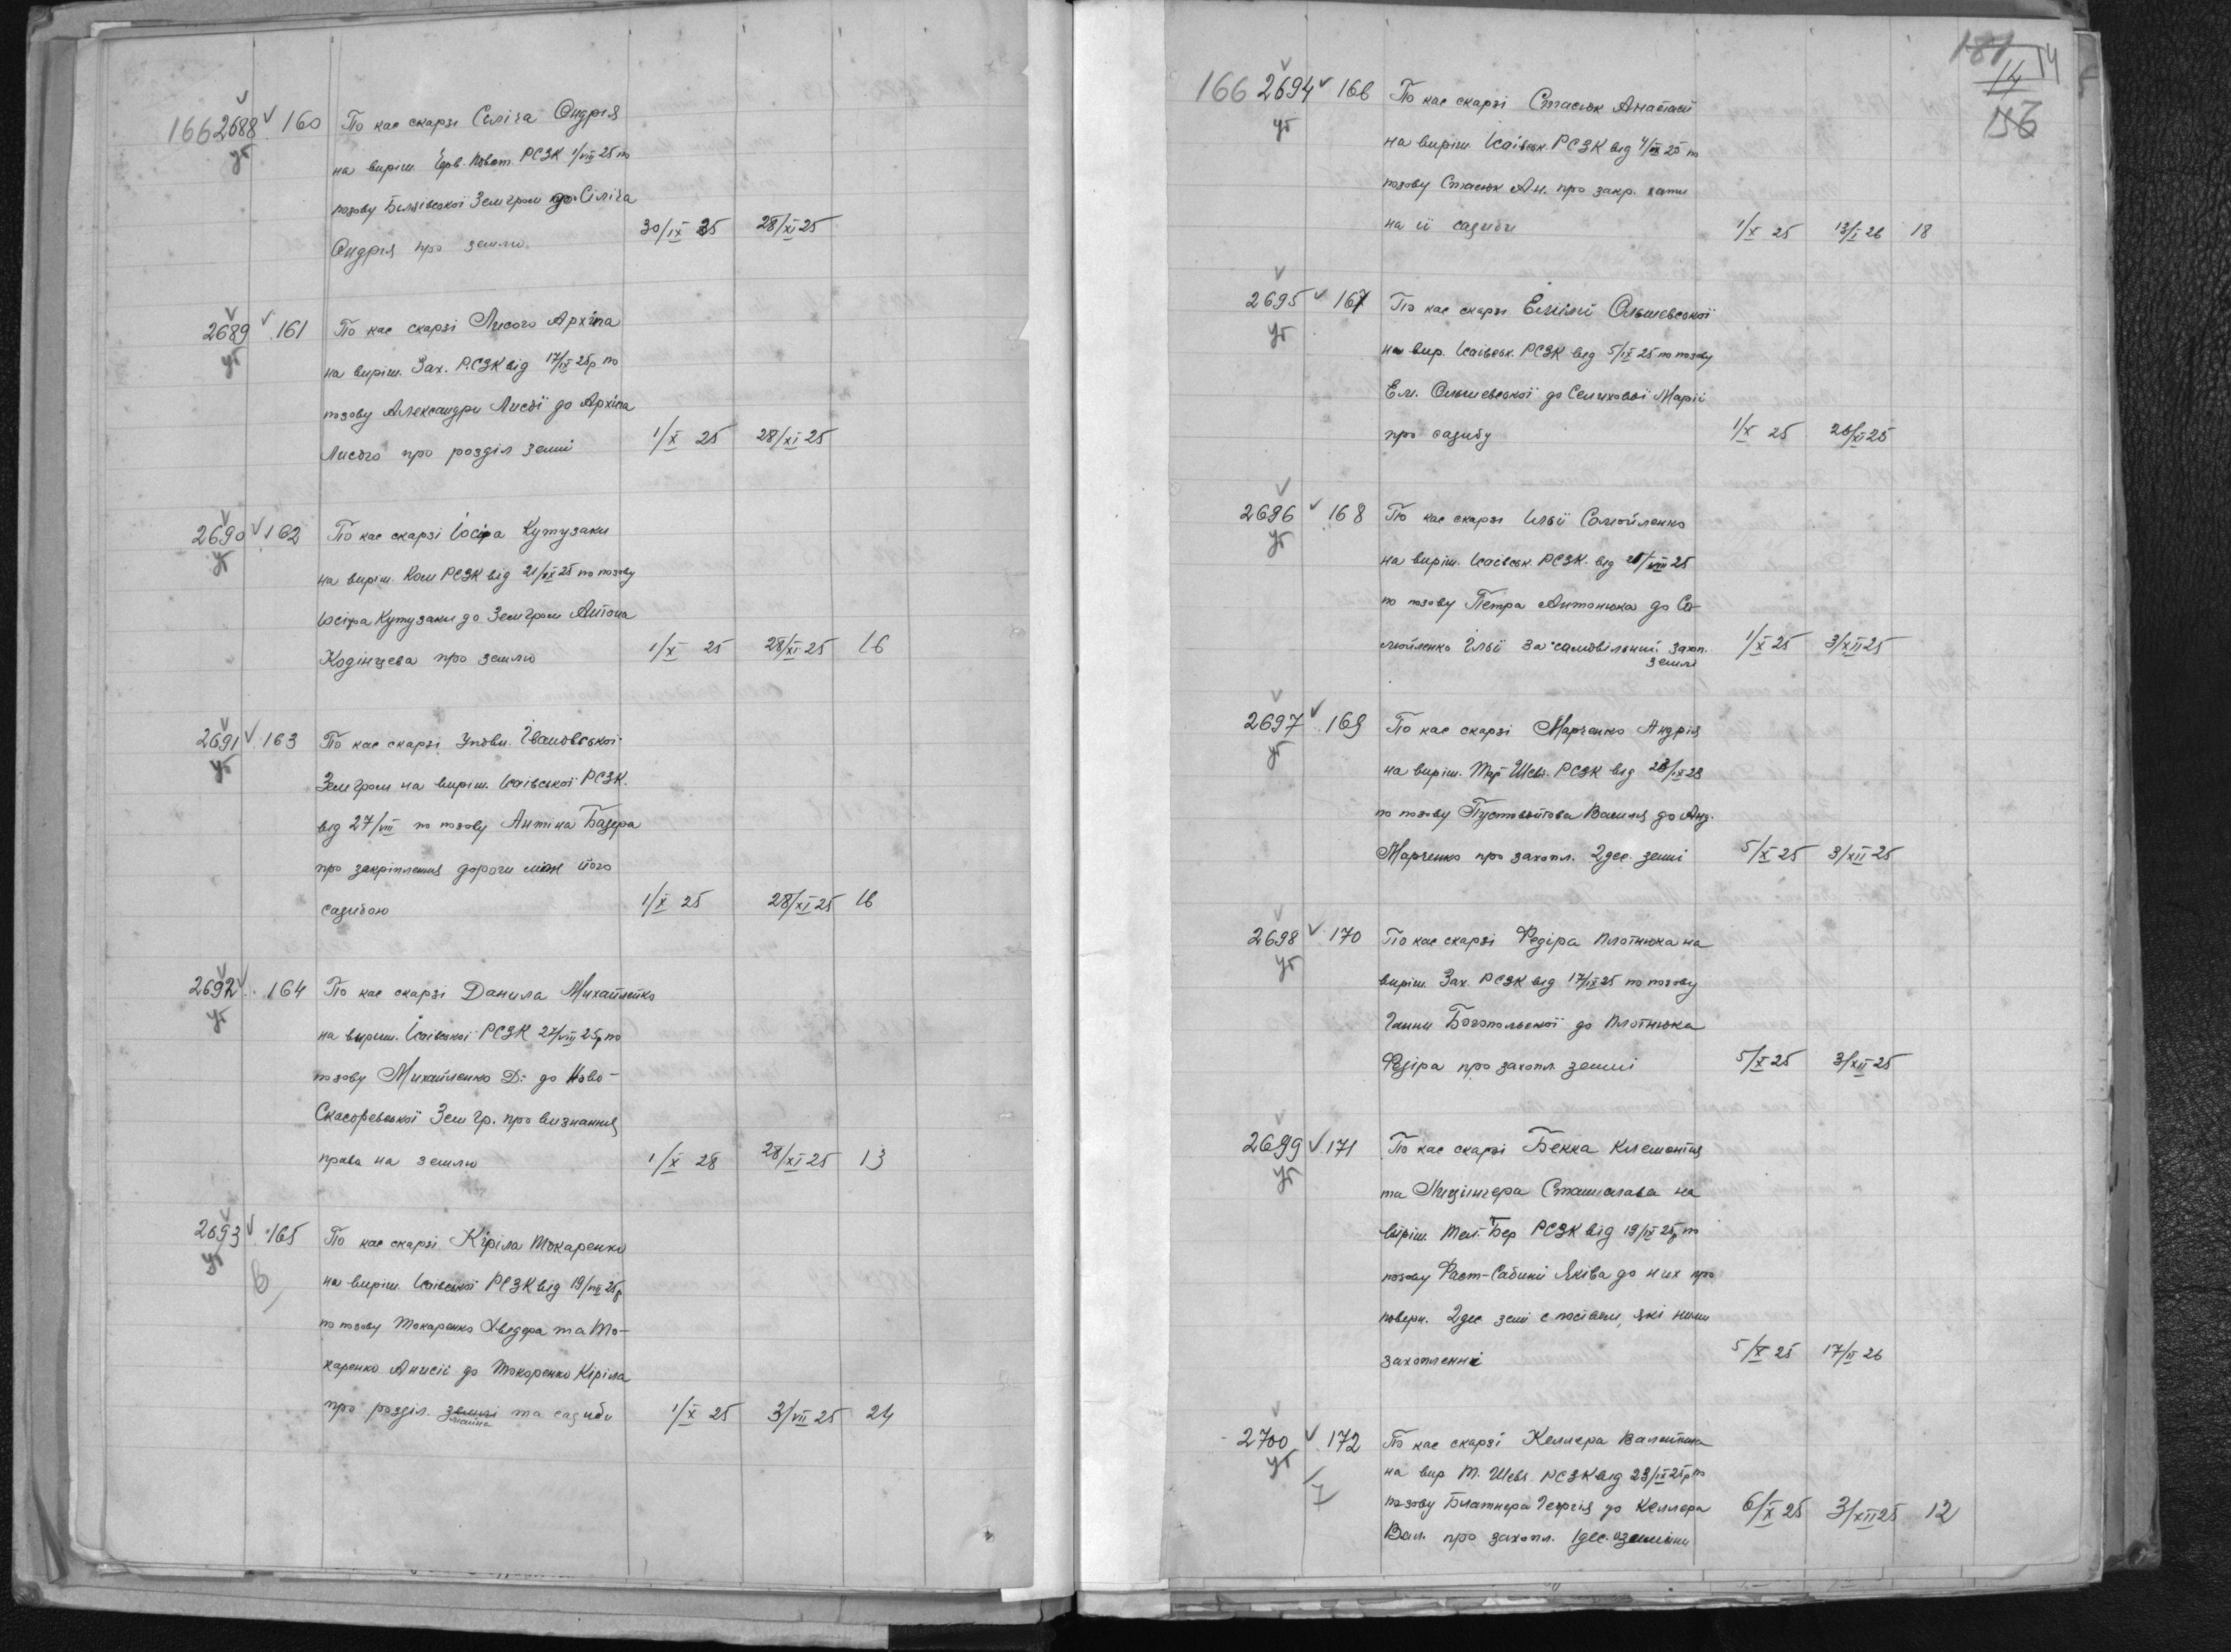 166 2688 160 По кас скарзі Сіліча Ондрія
на виріш. Черв. Повст. РСЗК 1/VIII 25 по
позову Біляївської Земгром до Сіліча
Ондрія про землю 30/IX 25 28/XI 25
2689 161 По кас скарзі Лисого Архіпа
на виріш. Зах. РСЗК від 17/IX 25р по
позову Александри Лисої до Архіпа
Лисого про розділ землі 1/X 25 28/XI 25
2690 162 По кас скарзі Іосіфа Кутузаки
на виріш. Ком РСЗК від 21/IX 25 по позову
Іосіфа Кутузаки доЗемгром Антона
Кодінцева про землю 1/X 25 28/XI 25 16
2691 163 По кас скарзі Уповн. Івановської
Земгром на виріш. Ісаівської РСЗК.
від 27/VIII по позову Антіна Базера
про закріплення дороги між його
садибою 1/X 25 28/XI 25 16
2692 164 По кас скарзі Данила Михайленко
на виріш. Ісаівської РСЗК 27/VIII 25р по
позову Михайленко Д. до Ново-
Скасоревської Зем гр. про визнання
права на землю 1/X 28 28/XI 25 13
2693 165 По кас скарзі Кіріла Токаренко
на виріш. Ісаівської РСЗК від 19/VIII 25р
по позову Токаренко Хведора та То-
каренко Анисії до Токоренко Кіріла
про розділ. землі майна та садиби 1/X 25 3/VII 25 24
6
181
14 14
156
166 2694 166 По кас скарзі Стасюк Анастасії
на виріш. Ісаівськ. РСЗК від 4/IX 25 по
позову Стасюк Ан. про закр. хати
на її садиби 1/X 25 13/I 26 18
2695 167 По кас скарзі Емілії Ольшевської
на вир. Ісаівськ. РСЗК від 5/IX 25 по позову
Ем. Ольшевської до Селихової Марії
про садибу 1/X 25 26/XI 25
2696 168 По кас скарзі Ільї Самойленко
на виріш. Ісаівськ. РСЗК. від 20/VIII 25
по позову Петра Антонюка до Са-
мойленко Ільї за самовільний захоп.
землі 1/X 25 3/XII 25
2697 169 По кас скарзі Марченко Андрія
на виріш. Тар Шевч. РСЗК від 23/IX 23
по позову Пустовойтова Василія до Анд.
Марченко про захопл. 2 дес. землі 5/X 25 3/XII 25
2698 170 По кас скарзі Федіра Плотнюка на
виріш. Зах. РСЗК від 17/IX 25 по позову
Ганни Богопольської до Плотнюка
Федіра про захопл. землі 5/X 25 3/XII 25
2699 171 По кас скарзі Бекка Клементія
та Лицінгера Станислава на
виріш. Тел. Бер РСЗК від 19/IX 25р по
позову Фаст-Сабиній Яківа до них про
поверн. 2 дес землі с посівом, які ними
захопленні 5/X 25 17/II 26
2700 172 По кас скарзі Келлера Валентина
на вир Т. Шевч. РСЗК від 23/IX 25р по
позову Блатнера Георгія до Келлера
Вал. про захопл. 1 дес. землі 6/X 25 3/XII 25 12
7